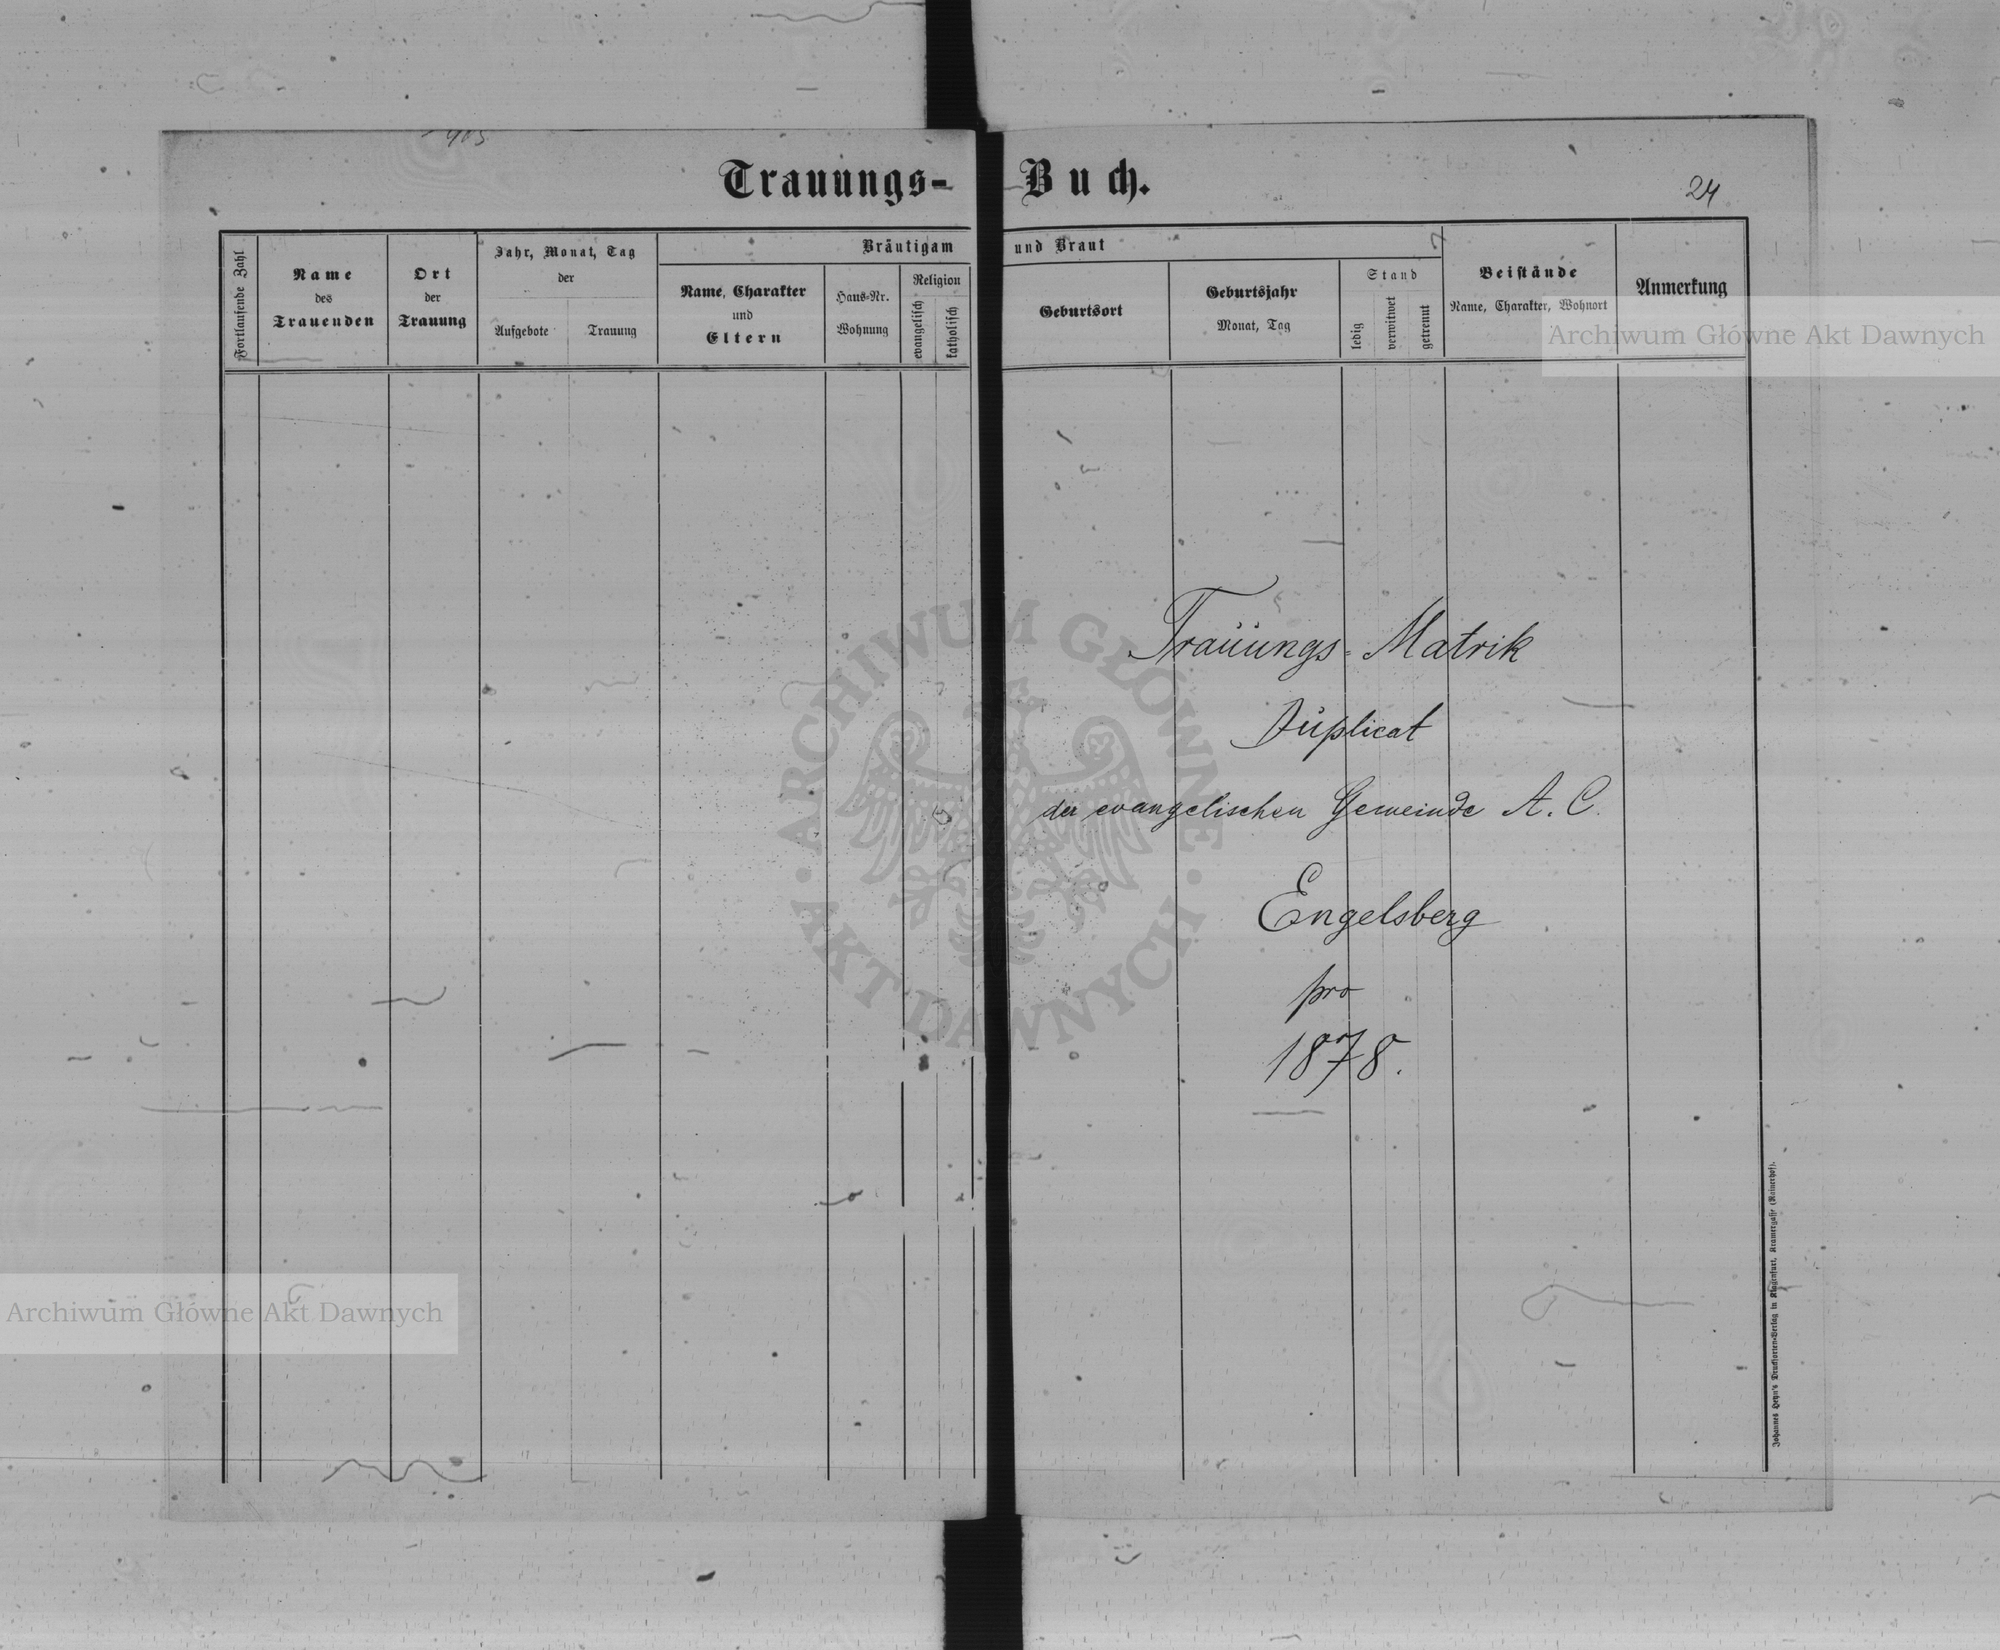 403
Trauungs- Buch.
24
Fortlaufende Zahl
Name
des
Trauenden
Ort
der
Trauung
Jahr, Monat, Tag
der
Aufgebote
Trauung
Bräutigam und Braut
Name, Charakter
und
Eltern
Haus-Nr.
Wohnung
Religion
evangelisch
katholisch
Geburtsort
Geburtsjahr
Monat, Tag
Stand
ledig
verwitwet
getrennt
Beistände
Name, Charakter, Wohnort
Anmerkung
Archiwum Główne Akt Dawnych
Traŭŭngs-Matrik
Dŭplicat
der evangelischen Gemeinde A. C.
Engelsberg
pro
1878.
ARCHIWUM GŁÓWNE
AKT DAWNYCH
Archiwum Główne Akt Dawnych
Johannes Heyn's Drucksorten-Verlag in Klagenfurt, Kramergasse (Rainerhof).